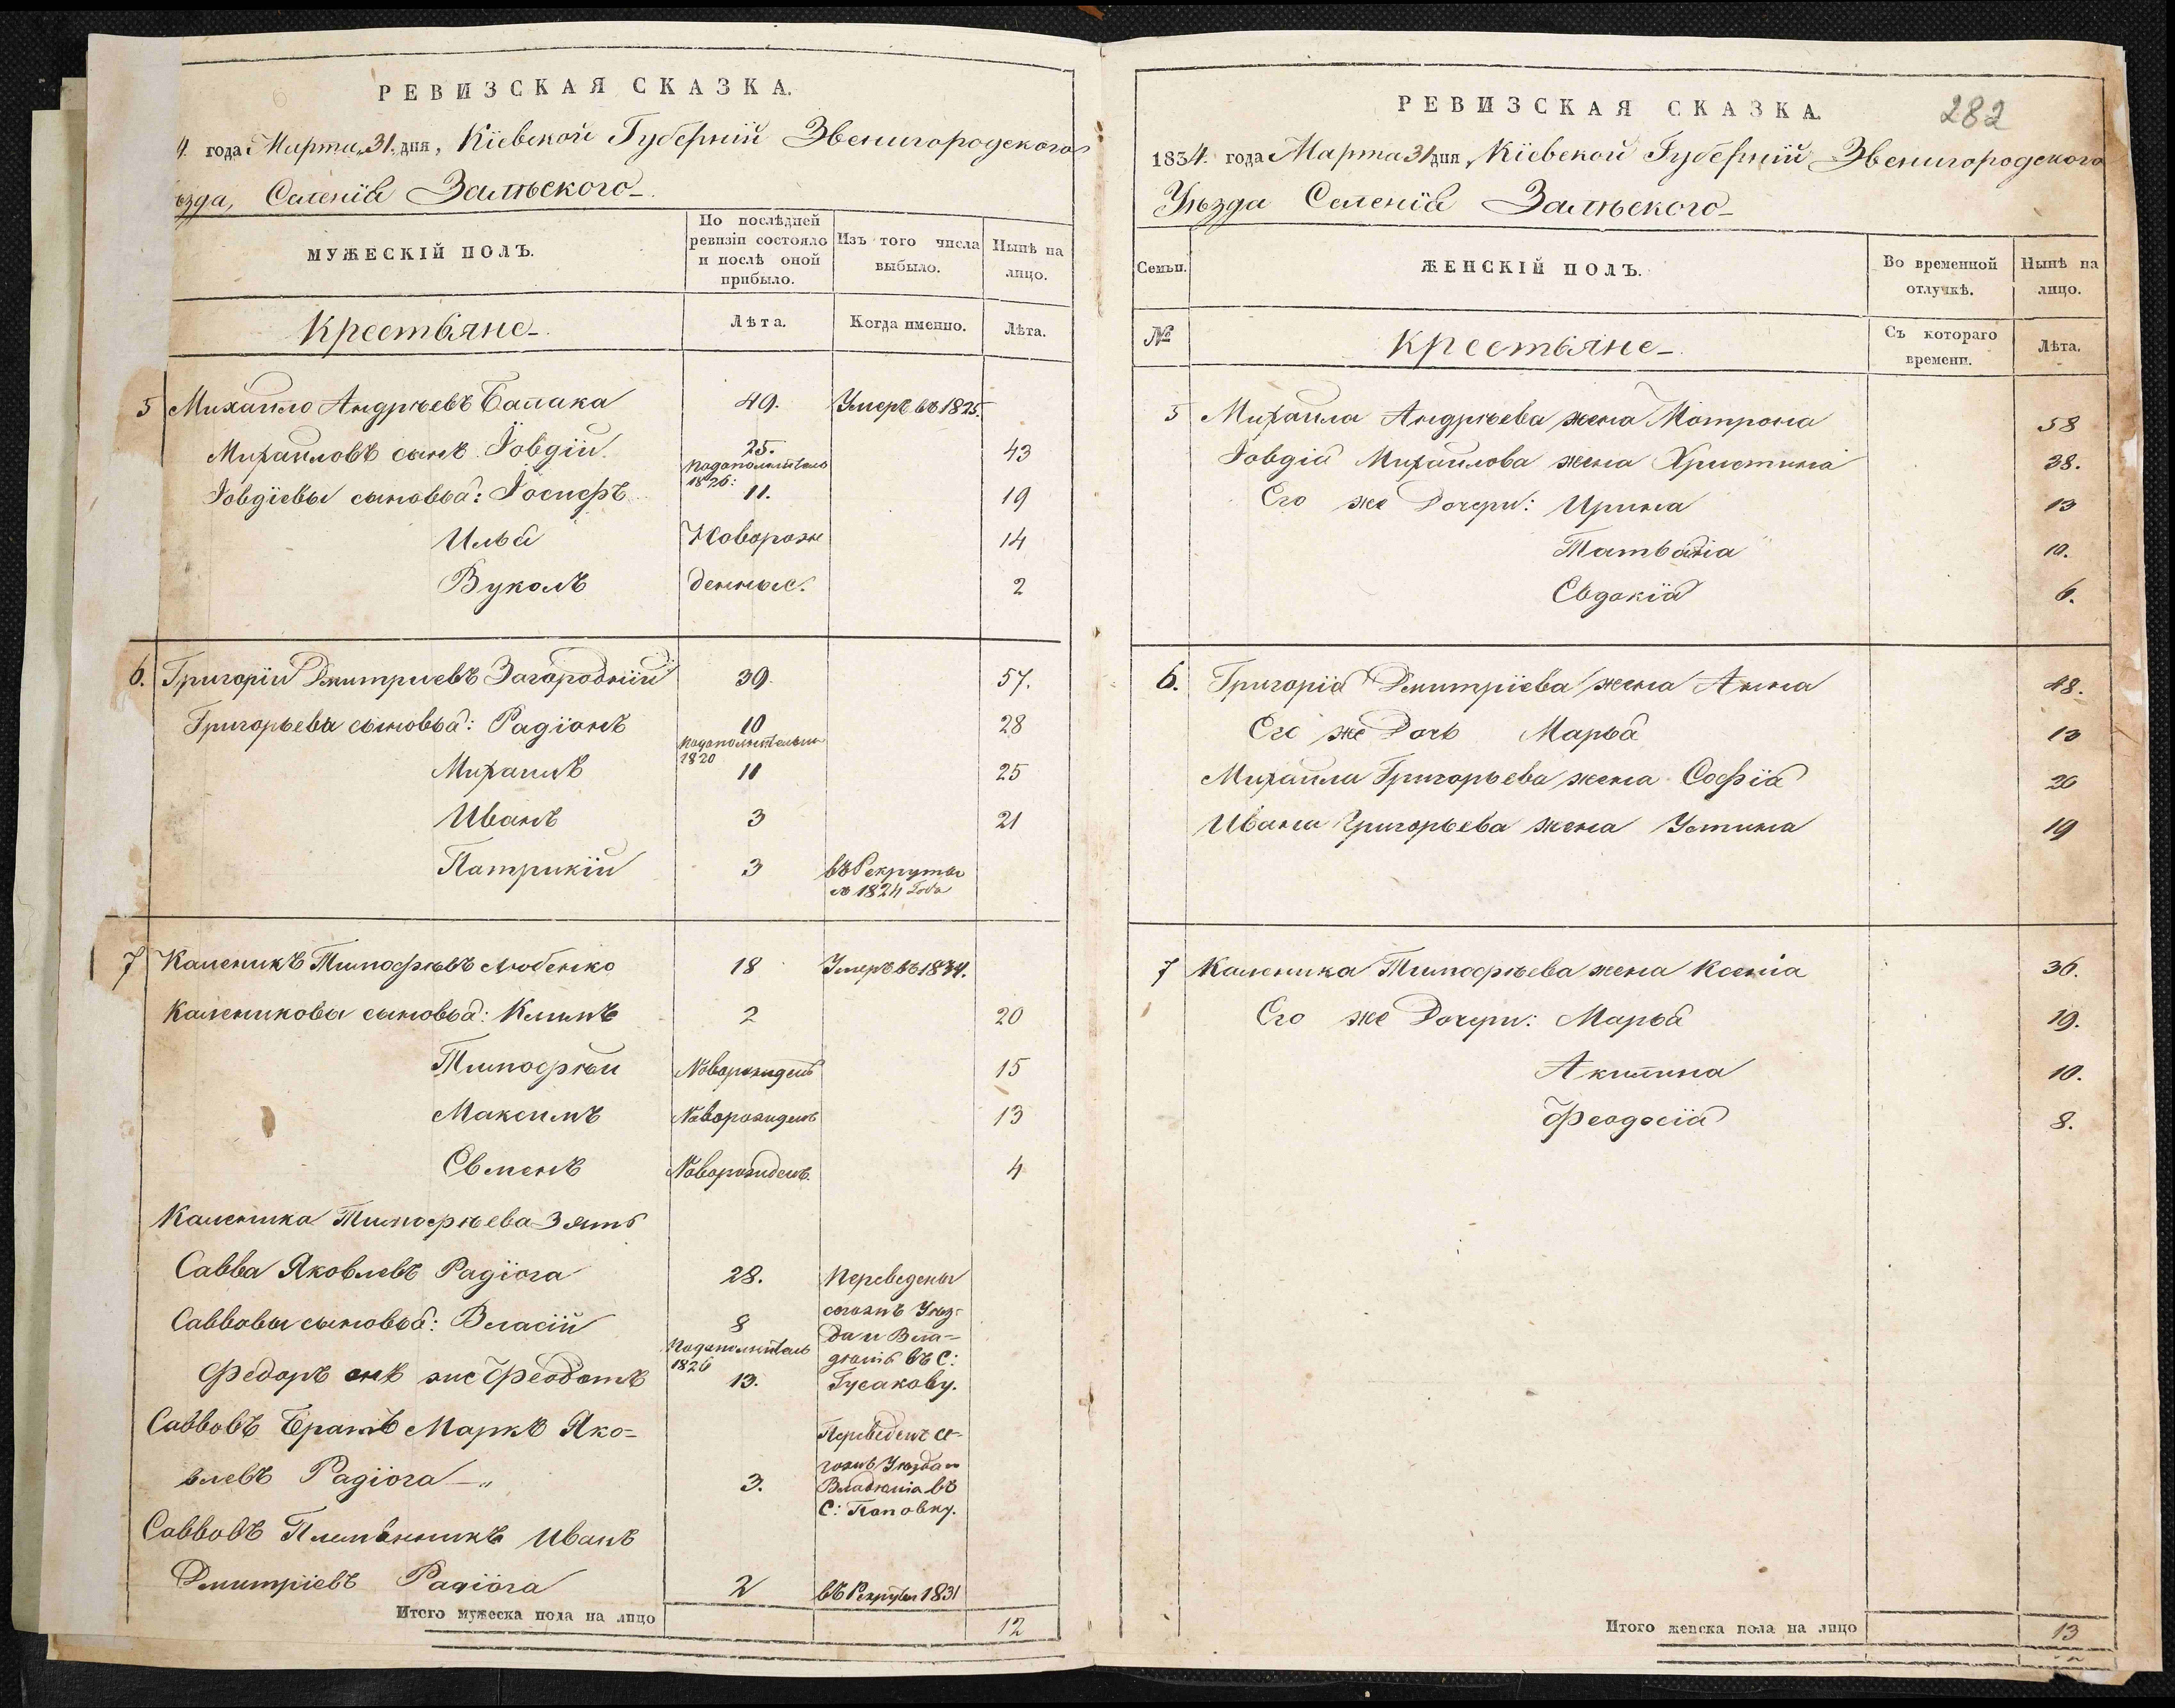 РЕВИЗСКАЯ СКАЗКА.
4. года Марта 31. дня, Кіевской Губерніи Звенигородского
ѣзда, Селенія Залѣского
МУЖЕСКІЙ ПОЛЪ.
По послѣдней ревизіи состояло и послѣ оной прибыло.
Изъ того числа выбыло.
Нынѣ на лицо.
Крестьяне
Лѣта.
Когда именно.
Лѣта.
5 Михайло Андрѣевъ 49. Умеръ въ 1825.
Михайловъ сынъ Іовдій 25. 43
1826:
Іовдіевы сыновья: Іосифъ 11. 19
Илья Новорож 14
Вуколъ денные. 2
6. Григорій Дмитріевъ Загородній 39. 57.
Григорьевы сыновья: Радіонъ 10 28
1820
Михаилъ 11 25
Иванъ 3 21
Патрикій 3 въ Рекруты
1824 Года
7 Каленикъ Тимофѣевъ Любенко 18 Умеръ въ 1834.
Калениковы сыновья: Климъ 2 20
Тимофѣй Новорожденъ 15
Максимъ Новорожденъ 13
Евменъ Новорожденъ. 4
Каленика Тимофѣева Зять
Савва Яковлевъ Радіога 28. Переведены
Саввовы сыновья: Власій 8 сегожъ Уѣз-
да и Вла-
1826 дѣнія въ С:
Федоръ онъ же Феодотъ 13. Гусакову.
Саввовъ Братъ Маркъ Яко= Переведенъ се-
гожъ Уѣзда и
влевъ Радіога 3. Владѣнія въ
С: Поповку.
Саввовъ Племянникъ Иванъ
Дмитріевъ Радіога 2 въ Рекруты 1831
Итого мужеска пола на лицо 12
РЕВИЗСКАЯ СКАЗКА.
282
1834. года Марта 31 дня, Кіевской Губерніи Звенигородского
Уѣзда Селенія Залѣского
Семьи.
ЖЕНСКІЙ ПОЛЪ.
Во временной отлучкѣ.
Нынѣ на лицо.
№
Крестьяне
Съ котораго времени.
Лѣта.
5 Михайла Андрѣева жена Мотрона 58
Іовдія Михайлова жена Христина 38.
Его же Дочери: Ирина 13
Татьяна 10.
Евдокія 6.
6. Григорія Дмитріева жена Анна 48.
Его же Дочь Марья 13
Михаила Григорьева жена Софія 20
Ивана Григорьева жена Устина 19
7 Каленика Тимофѣева жена Ксенія 36.
Его же Дочери: Марья 19.
Акилина 10.
Феодосія 8.
Итого женска пола на лицо 13